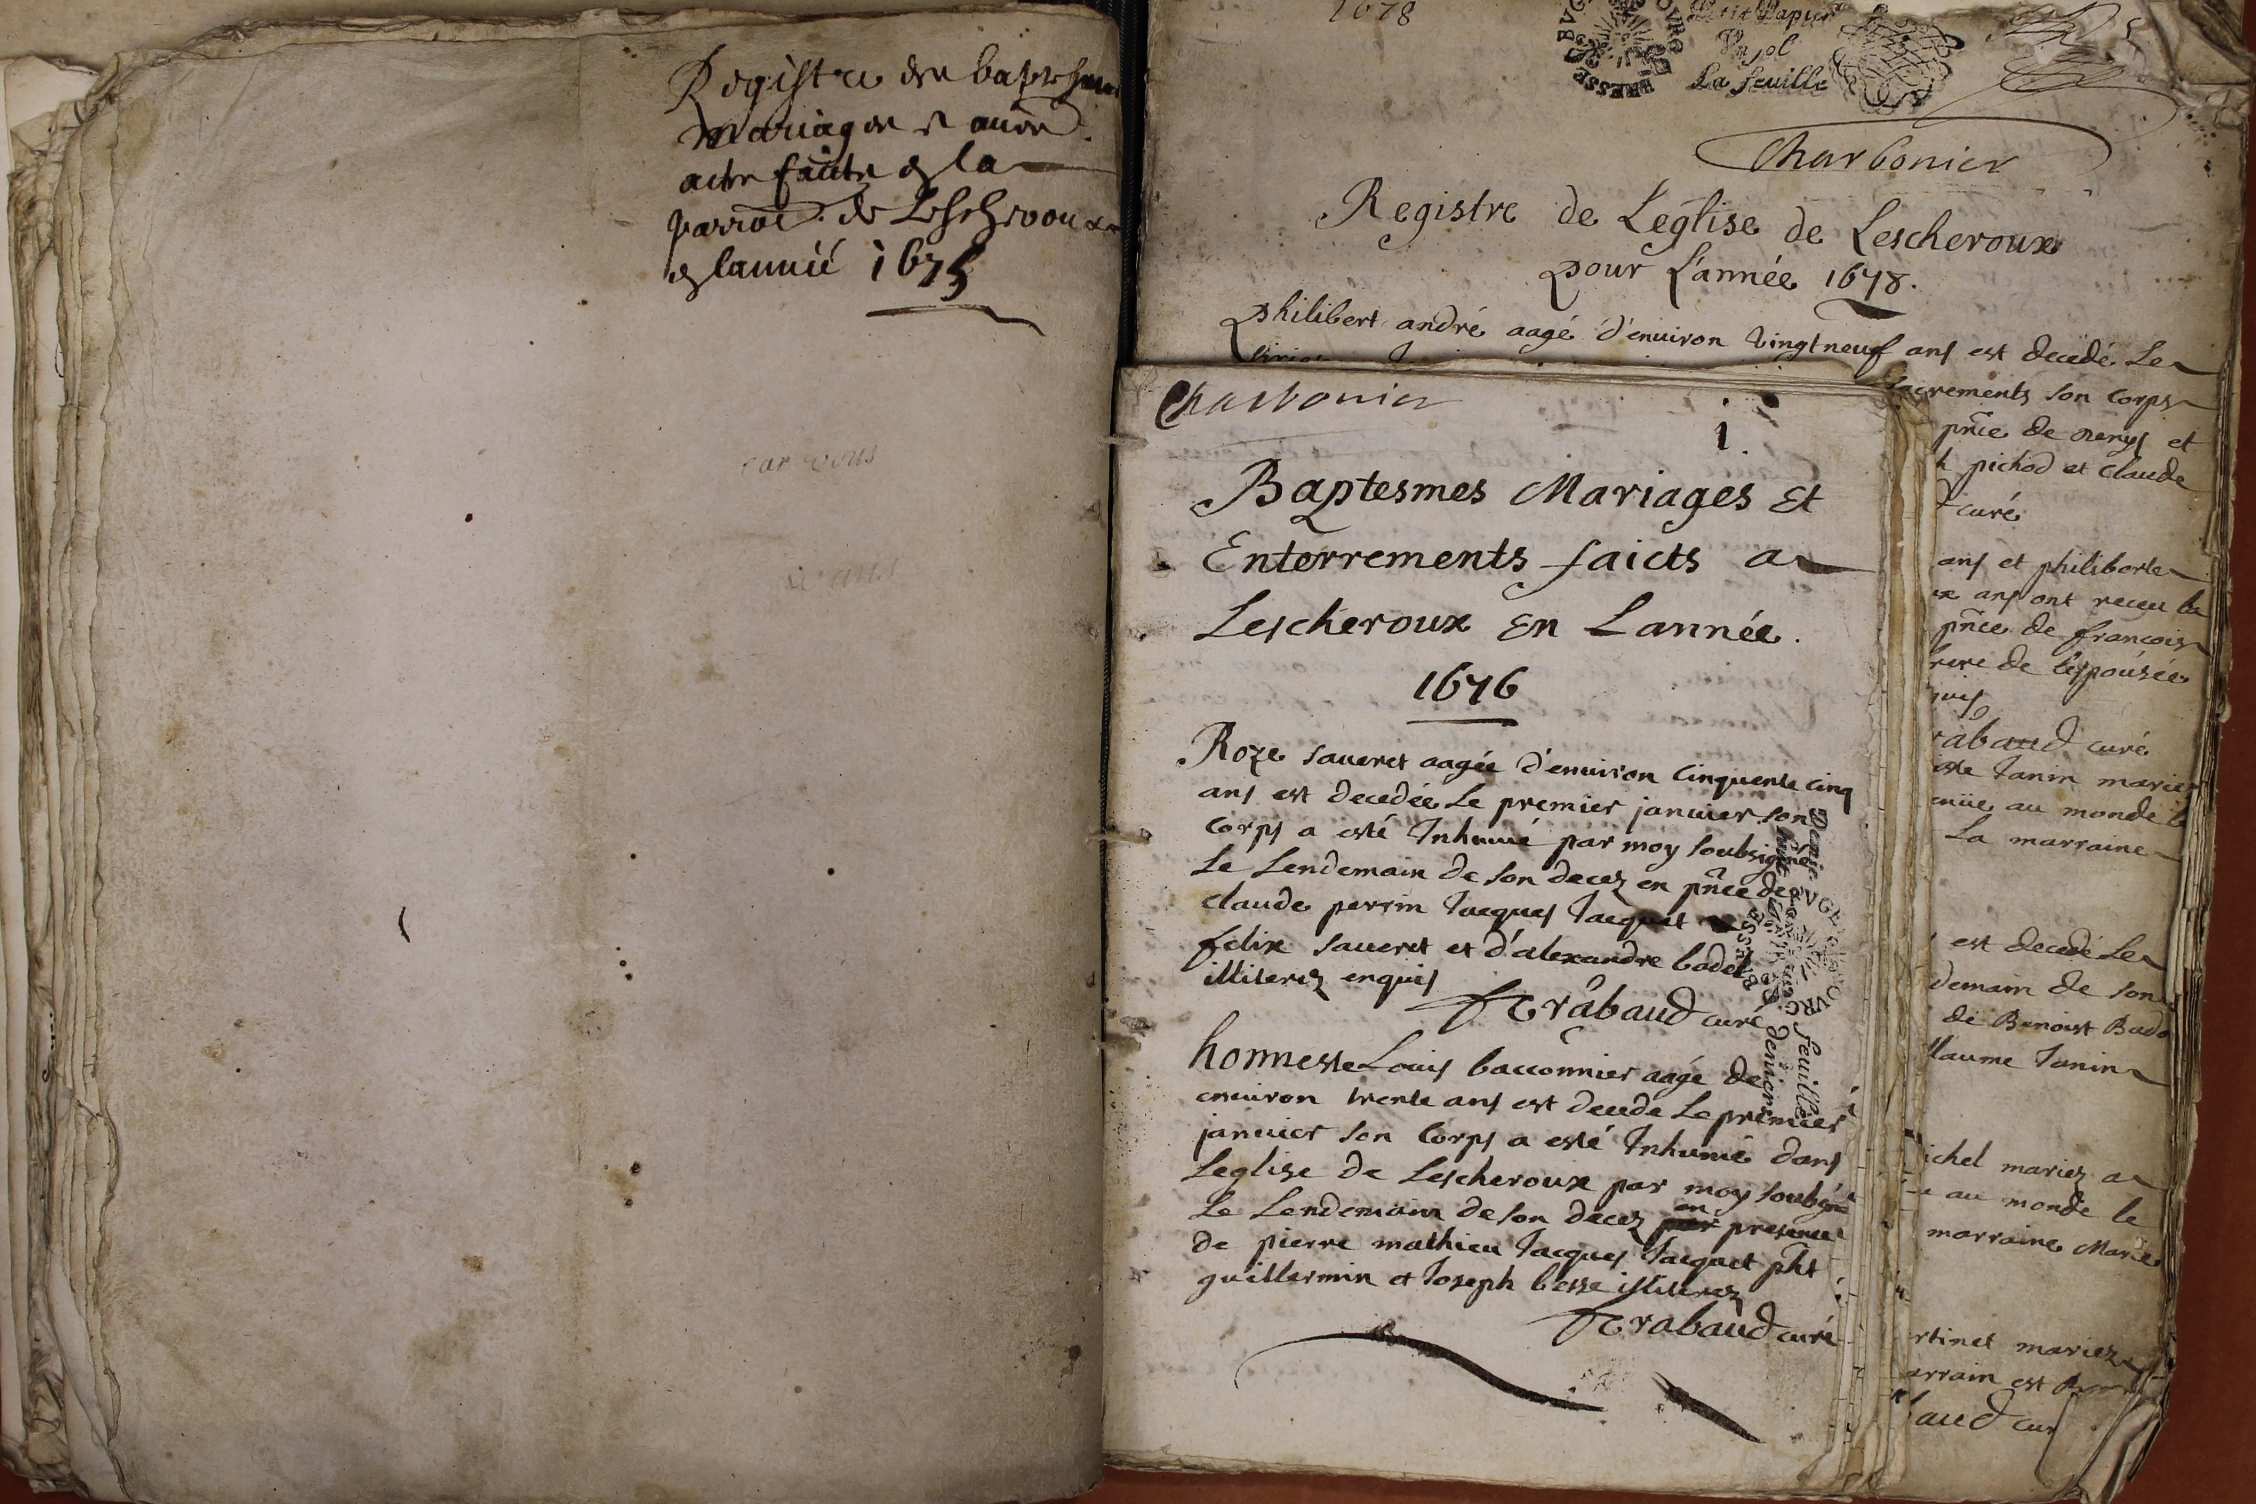 Registre des baptesmes
mariages et autres
actes faicts en la
parroe. de Lescheroux
en lannée 1675
1678
Petit Papier
Un sol
La feuille
BRESSE BUGEY
Charbonier
Registre de Leglise de Lescheroux
pour L'année 1678.
philibert andré aagé d'enuiron vingtneuf ans est decedé Le
sacrements son corps
pñce de Denys et
pichod et claude
curé
ans et philiberte
ans ont receu la
pñce de francois
frere de l'espousée
quis
rabaud curé
Janin mariez
enüe au monde le
La marraine
est decedé Le
demain de son
de Benoist Bado
llaume Janin
ichel mariez a
au monde le
marraine Marie
rtinet mariez
arrain est
baud cur
Charbonier
1.
Baptesmes Mariages Et
Enterrements faicts a
Lescheroux En Lannée.
1676
Roze saueret aagée d'enuiron Cinquente cinq
ans est decedée Le premier januier son
Corps a esté Inhumé par moy soubsigné
Le Lendemain de son decez en pñce de
claude perrin Jacques Jacquet
felix saueret et d'alexandre badel
illiterez enquis
Trabaud curé
honneste Louis bacconnier aagé de
enuiron trente ans est decedé Le premier
januier son Corps a esté Inhumé dans
Leglise de Lescheroux par moy soubsigné
Le Lendemain de son decez en presence
de pierre mathieu Jacques Jacquet pht
guillermin et Joseph besse illiterez
Trabaud curé